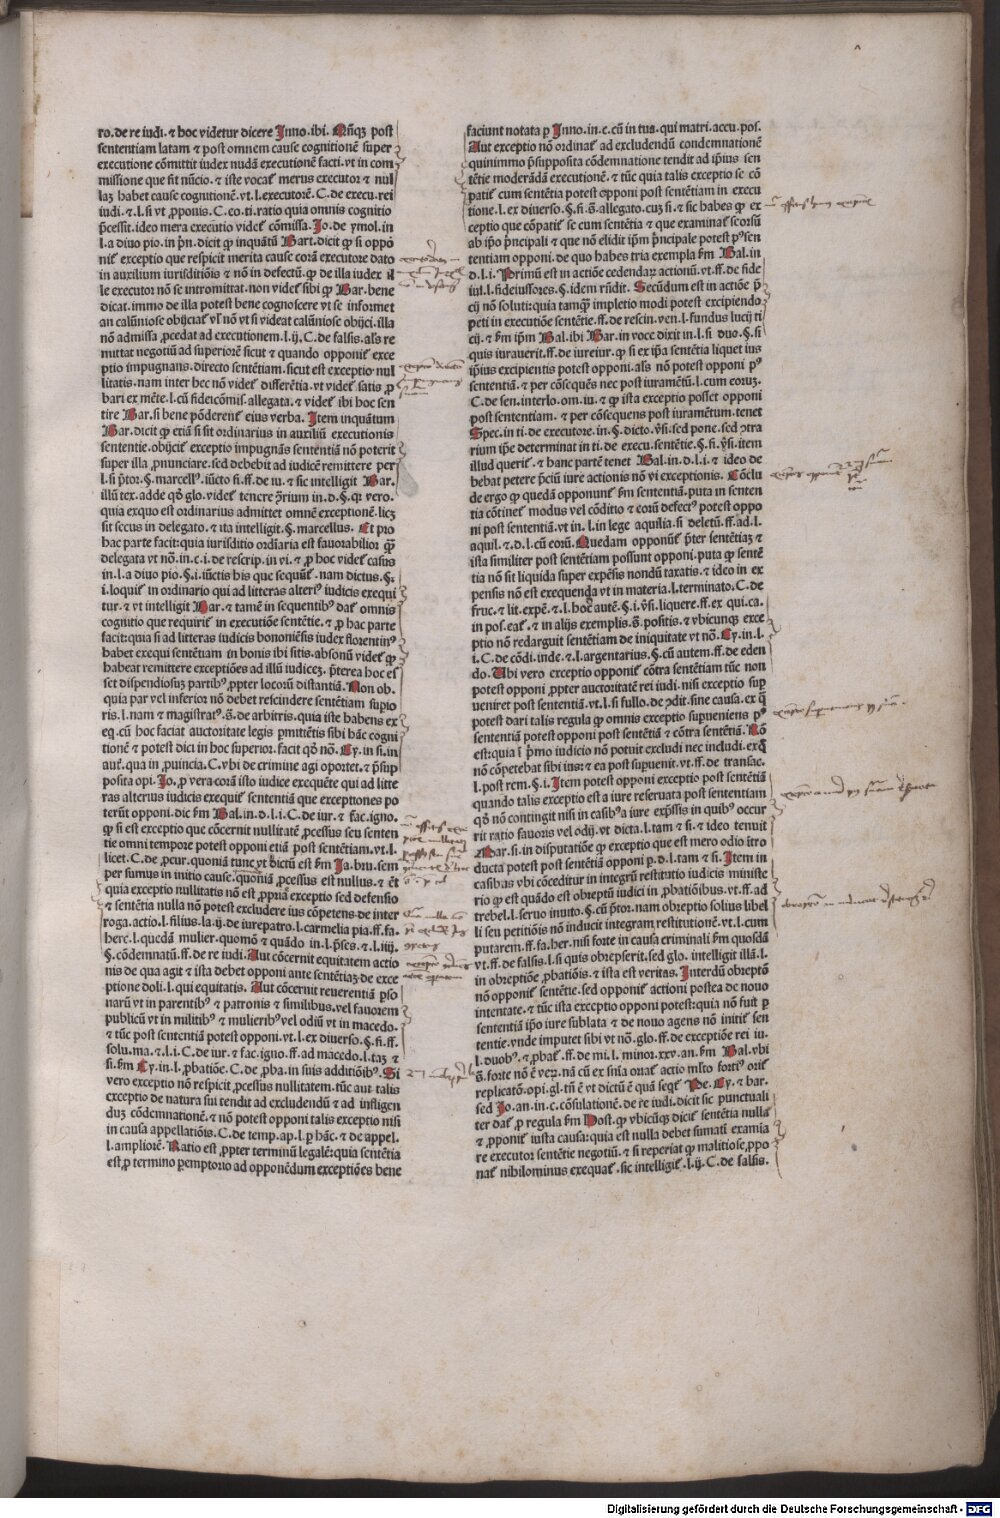 ro.de re iudi.⁊ hoc videtur dicere Inno.ibi. Nũqꝫ post
sententiam latam ⁊ post omnem cause cognitionẽ super
executione cõmittit iudex nudã executionẽ facti.vt in com
missione que fit nũcio.⁊ iste vocat̃ merus executor ⁊ nul
laꝫ habet cause cognitionẽ.vt.l.executorẽ.C.de execu.rei
iudi.⁊.l.si vt ꝓponis.C.co.ti.ratio quia omnis cognitio
p̃cessit.ideo mera executio videt̃ cõmissa. Jo.de ymol.in
l.a diuo pio.in p̃n.dicit ꝙ inquãtũ Bart.dicit ꝙ si oppo
nit̃ exceptio que respicit merita cause corã executore dato
in auxilium iurisditiõis ⁊ nõ in defectũ.ꝙ de illa iudex il
le executor nõ se intromittat.non videt̃ sibi ꝙ Bar.bene
dicat.immo de illa potest bene cognoscere vt se informet
an calũniose obijciat̃ vl̃ nõ vt si videat calũniose obijci.illa
nõ admissa ꝓcedat ad executionem.l.ij.C.de falsis.als̃ re
mittat negotiũ ad superiorẽ sicut ⁊ quando opponit̃ exce
ptio impugnans directo sentẽtiam.sicut est exceptio nul
litatis.nam inter hec nõ videt̃ differẽtia.vt videt̃ satis ꝓ
bari ex mẽte.l.cũ fideicõmis.allegata.⁊ videt̃ ibi hoc sen
tire Bar.si bene põderent̃ eius verba. Item inquãtum
Bar.dicit ꝙ etiã si sit ordinarius in auxiliũ executionis
sententie.obijcit̃ exceptio impugnãs sententiã nõ poterit
super illa ꝓnunciare.sed debebit ad iudicẽ remittere per
l.si p̃tor.§.marcell⁹.iũcto si.ff.de iu.⁊ sic intelligit Bar.
illũ tex.adde qd̃ glo.videt̃ tenere ꝯ̃rium in.d.§.qꝛ vero.
quia exquo est ordinarius admittet omnẽ exceptionẽ.licꝫ
sit secus in delegato.⁊ ita intelligit.§.marcellus. Et pro
hac parte facit:quia iurisditio ordĩaria est fauorabilior q̃ꝫ
delegata vt nõ.in.c.i.de rescrip.in vi.⁊ ꝓ hoc videt̃ casus
in.l.a diuo pio.§.i.iũctis his que sequũt̃.nam dictus.§.
i.loquit̃ in ordinario qui ad litteras alteri⁹ iudicis exequi
tur.⁊ vt intelligit Bar.⁊ tamẽ in sequentib⁹ dat̃ omnis
cognitio que requirit̃ in executiõe sentẽtie.⁊ ꝓ hac parte
facit:quia si ad litteras iudicis bononiẽsis iudex florentin⁹
habet exequi sentẽtiam in bonis ibi sitis.absonũ videt̃ ꝙ
habeat remittere exceptiões ad illũ iudiceꝫ.p̃terea hoc es
set dispendiosuꝫ partib⁹ ꝓpter locorũ distantiã. Non ob.
quia par vel inferior nõ debet rescindere sentẽtiam supio
ris.l.nam ⁊ magistrat⁹.ff̃.de arbitris.quia iste habens ex
eq.cũ hoc faciat auctoritate legis p̱mittẽtis sibi hãc cogni
tionẽ ⁊ potest dici in hoc superior.facit qd̃ nõ. Cy.in si.in
aut̃.qua in ꝓuincia.C.vbi de crimine agi oportet.⁊ p̃sup
posita opi. Jo.ꝓ vera corã isto iudice execq̃ẽte qui ad litte
ras alterius iudicis exequit̃ sententiã que exceptiones po
terũt opponi.dic s̃m Bal.in.d.l.i.C.de iur.⁊ fac.igno.
ꝙ si est exceptio que cõcernit nullitatẽ ꝓcessus seu senten
tie omni tempore potest opponi etiã post sentẽtiam.vt.l.
licet.C.de ꝓcur.quoniã tunc vt dictũ est s̃m Ja.bru.sem
per sumus in initio cause.quoniã ꝓcessus est nullus.⁊ ẽt
quia exceptio nullitatis nõ est ꝓpriã exceptio sed defensio
⁊ sentẽtia nulla nõ potest excludere ius cõpetens.de inter
roga.actio.l.filius.la.ij.de iurepatro.l.carmelia pia.ff.fa.
herc.l.quedã mulier.quomõ ⁊ quãdo in.l.p̃ses.⁊.l.iiij.
§.cõdemnatũ.ff.de re iudi. Aut cõcernit equitatem actio
nis de qua agit ⁊ ista debet opponi ante sentẽtiaꝫ.de exce
ptione doli.l.qui equitatis. Aut cõcernit reuerentiã ꝑso
narũ vt in parentib⁹ ⁊ patronis ⁊ similibus.vel fauorem
publicũ vt in militib⁹ ⁊ mulierib⁹ vel odiũ vt in macedo.
⁊ tũc post sententiã potest opponi.vt.l.ex diuerso.§.fi.ff.
solu.ma.⁊.l.i.C.de iur.⁊ fac.igno.ff.ad macedo.l.taꝫ ⁊
si.s̃m Cy.in.l.ꝓbatiõe.C.de ꝓba.in suis additiõib⁹. Si
vero exceptio nõ respicit ꝓcessus nullitatem:tũc aut talis
exceptio de natura sui tendit ad excludendũ ⁊ ad infligen
duꝫ cõdẽmnationẽ.⁊ nõ potest opponi talis exceptio nisi
in causa appellatiõis.C.de temp.ap.l.ꝑ hãc.⁊ de appel.
l.ampliorẽ. Ratio est ꝓpter terminũ legalẽ:quia sentẽtia
est ꝓ termino p̱emptorio ad opponẽdum exceptiões bene
faciunt notata ꝑ Inno.in.c.cũ in tua.qui matri.accu.pos.
Aut exceptio nõ ordinat̃ ad excludendũ condemnationẽ
quinimmo p̃supposita cõdẽmnatione tendit ad ip̃ius sen
tẽtie moderãdã executionẽ.⁊ tũc quia talis exceptio se cõ
patit̃ cum sentẽtia potest opponi post sentẽtiam in execu
tione.l.ex diuerso.§.fi.ff̃.allegato.cuꝫ si.⁊ sic habes ꝙ ex
ceptio que cõpatit̃ se cum sentẽtia ⁊ que examinat̃ scorsũ
ab ip̃o p̃ncipali ⁊ que nõ elidit ip̃m p̃ncipale potest p⁹ sen
tentiam opponi.de quo habes tria exempla s̃m Bal.in
d.l.i. Primũ est in actiõe cedendaꝝ actionũ.vt.ff.de fide
iul.l.fideiussores.§.idem rñdit. Secũdum est in actiõe p̃
cij nõ soluti:quia tamq̃ꝫ impletio modi potest excipiendo
peti in executiõe sentẽtie.ff.de rescin.ven.l.fundus lucij ti
cij.⁊ s̃m ip̃m Bal.ibi Bar.in voce dixit in.l.si duo.§.si
quis iurauerit.ff.de iureiur.ꝙ si ex ip̃a sentẽtia liquet ius
ip̃ius excipientis potest opponi.als̃ nõ potest opponi p⁹
sentẽtiã.⁊ per cõseq̃uẽs nec post iuramẽtũ.l.cum eoruꝫ.
C.de sen.interlo.om.iu.⁊ ꝙ ista exceptio posset opponi
post sententiam.⁊ per cõsequens post iuramẽtum.tenet
Spec.in ti.de executore.in.§.dicto.v̉si.sed pone.sed ꝯtra
rium ip̃e determinat in ti.de execu.sentẽtie.§.fi.v̉si.item
illud querit̃.⁊ hanc partẽ tenet Bal.in.d.l.i.⁊ ideo de
bebat petere p̃ciũ iure actionis nõ vi exceptionis. Cõclu
de ergo ꝙ quedã opponunt̃ s̃m sententiã.puta in senten
tia cõtinet̃ modus vel cõditio ⁊ eorũ defect⁹ potest oppo
ni post sentẽtiã.vt in.l.in lege aquilia.si deletũ.ff.ad.l.
aquil.⁊.d.l.cũ eorũ. Quedam opponũt̃ p̃ter sentẽtiaꝫ ⁊
ista similiter post sentẽtiam possunt opponi.puta ꝙ sentẽ
tia nõ sit liquida super expẽsis nondũ taxatis.⁊ ideo in ex
pensis nõ est exequenda vt in materia.l.terminato.C.de
fruc.⁊ lit.expẽ.⁊.l.hoc autẽ.§.i.v̉si.liquere.ff.ex qui.ca.
in pos.eat̃.⁊ in alijs exemplis.ff̃.positis.⁊ vbicunqꝫ exce
ptio nõ redarguit sentẽtiam de iniquitate vt nõ. Cy.in.l.
i.C.de cõdi.inde.⁊.l.argentarius.§.cũ autem.ff.de eden
do. Ubi vero exceptio opponit̃ cõtra sentẽtiam tũc non
potest opponi ꝓpter auctoritatẽ rei iudi.nisi exceptio sup̱
ueniret post sententiã.vt.l.si fullo.de ꝯdit.sine causa.ex q̃
potest dari talis regula ꝙ omnis exceptio supueniens p⁹
sententiã potest opponi post sentẽtiã ⁊ cõtra sentẽtiã. Rõ
est:quia ĩ p̃mo iudicio nõ potuit excludi nec includi.exq̃
nõ cõpetebat sibi ius:⁊ ea post supuenit.vt.ff.de transac.
l.post rem.§.i. Item potest opponi exceptio post sentẽtiã
quando talis exceptio est a iure reseruata post sententiam
qd̃ nõ contingit nisi in casib⁹ a iure exp̃ssis in quib⁹ occur
rit ratio fauoris vel odij.vt dicta.l.tam ⁊ si.⁊ ideo tenuit
Bar.si in disputatiõe ꝙ exceptio que est mero odio ĩtro
ducta potest post sentẽtiã opponi ꝑ.d.l.tam ⁊ si. Item in
casibus vbi cõceditur in integrũ restitutio iudicis ministe
rio ꝙ est quãdo est obreptũ iudici in ꝓbatiõibus.vt.ff.ad
trebel.l.seruo inuito.§.cũ p̃tor.nam obreptio solius libel
li seu petitiõis nõ inducit integram restitutionẽ.vt.l.cum
putarem.ff.fa.her.nisi forte in causa criminali s̃m quosdã
vt.ff.de falsis.l.si quis obrepserit.sed glo.intelligit illã.l.
in obreptiõe ꝓbatiõis.⁊ ista est veritas. Interdũ obreptõ
nõ opponit̃ sentẽtie.sed opponit̃ actioni postea de nouo
intentate.⁊ tũc ista exceptio opponi potest:quia nõ fuit ꝑ
sententiã ip̃o iure sublata ⁊ de nouo agens nõ initit̃ sen
tentie.vnde imputet sibi vt nõ.glo.ff.de exceptiõe rei iu.
l.duob⁹.⁊ ꝓbat̃.ff.de mi.l.minor.xxv.an.s̃m Bal.vbi
ff̃.forte nõ ẽ veꝝ.nã cũ ex sñia oriat̃ actio mlto forti⁹ orit̃
replicatõ.opi.gl.tñ ẽ vt dictũ ẽ quã seqt̃ Pe. Cy.⁊ bar.
sed Jo.an.in.c.cõsulationẽ.de re iudi.dicit sic punctuali
ter dat̃ ꝓ regula s̃m Host.ꝙ vbicũqꝫ dicit̃ sentẽtia nulla
⁊ ꝓponit̃ iusta causa:quia est nulla debet sumati̇ examia
re executor sentẽtie negotiũ.⁊ si reperiat ꝙ malitiose ꝓpo
nat̃ nihilominus exequat̃.sic intelligit̃.l.ij.C.de falsis.
Digitalisierung gefördert durch die Deutsche Forschungsgemeinschaft - DFG